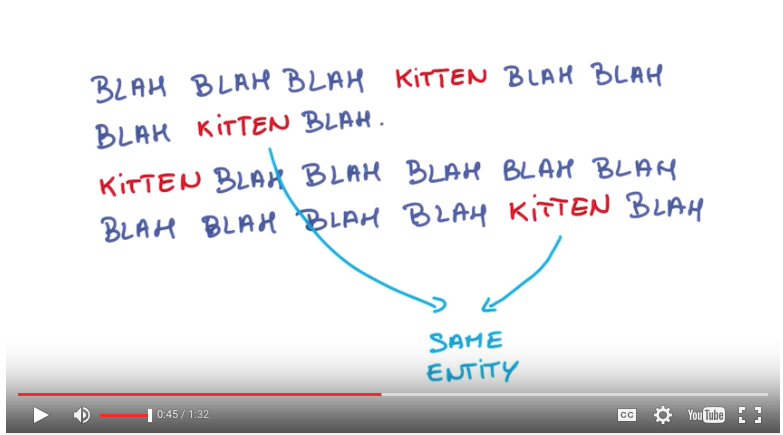 BLAH BLAH BLAH KITTEN BLAH BLAH
BLAH KITTEN BLAH.
KITTEN BLAH BLAH BLAH BLAH BLAH
BLAH BLAH BLAH BLAH KITTEN BLAH
SAME
ENTITY
0:45 / 1:32
CC
YouTube